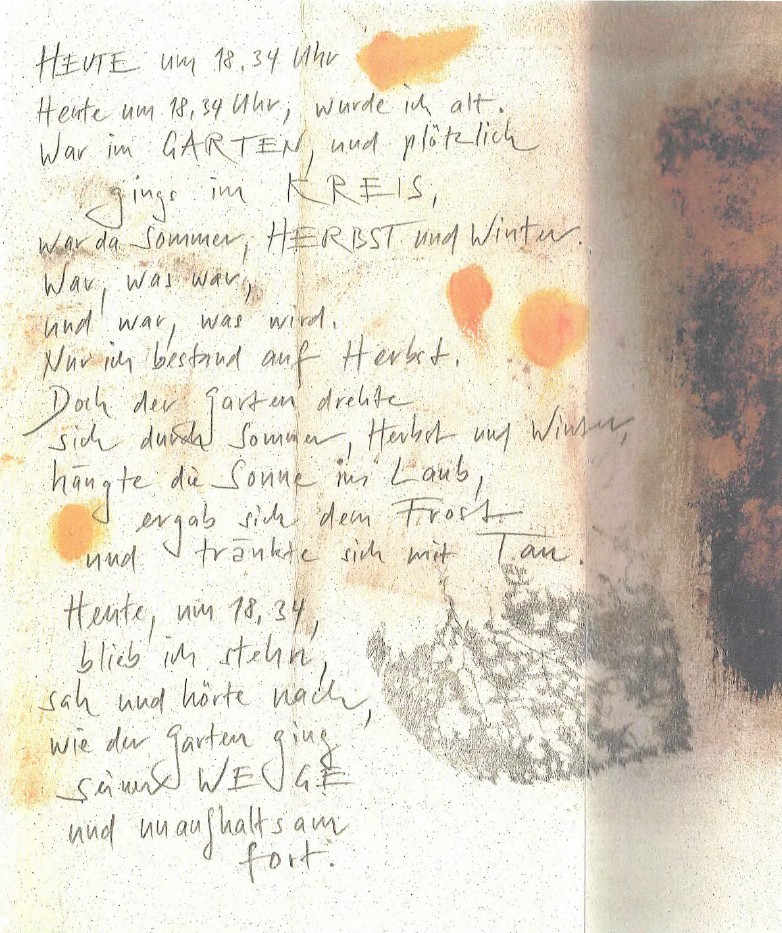 HEUTE um 18.34 Uhr
Heute um 18,34 Uhr, wurde ich alt.
War im GARTEN, und plötzlich
gings im KREIS,
war da Sommer, HERBST und Winter.
War, was war,
und war, was wird.
Nur ich bestand auf Herbst.
Doch der Garten drehte
sich durch Sommer, Herbst und Winter,
hängte die Sonne ins Laub,
ergab sich dem Frost
und tränkte sich mit Tau.
Heute, um 18,34,
blieb ich stehn,
sah und hörte nach,
wie der Garten ging
seiner WEGE
und unaufhaltsam
fort.